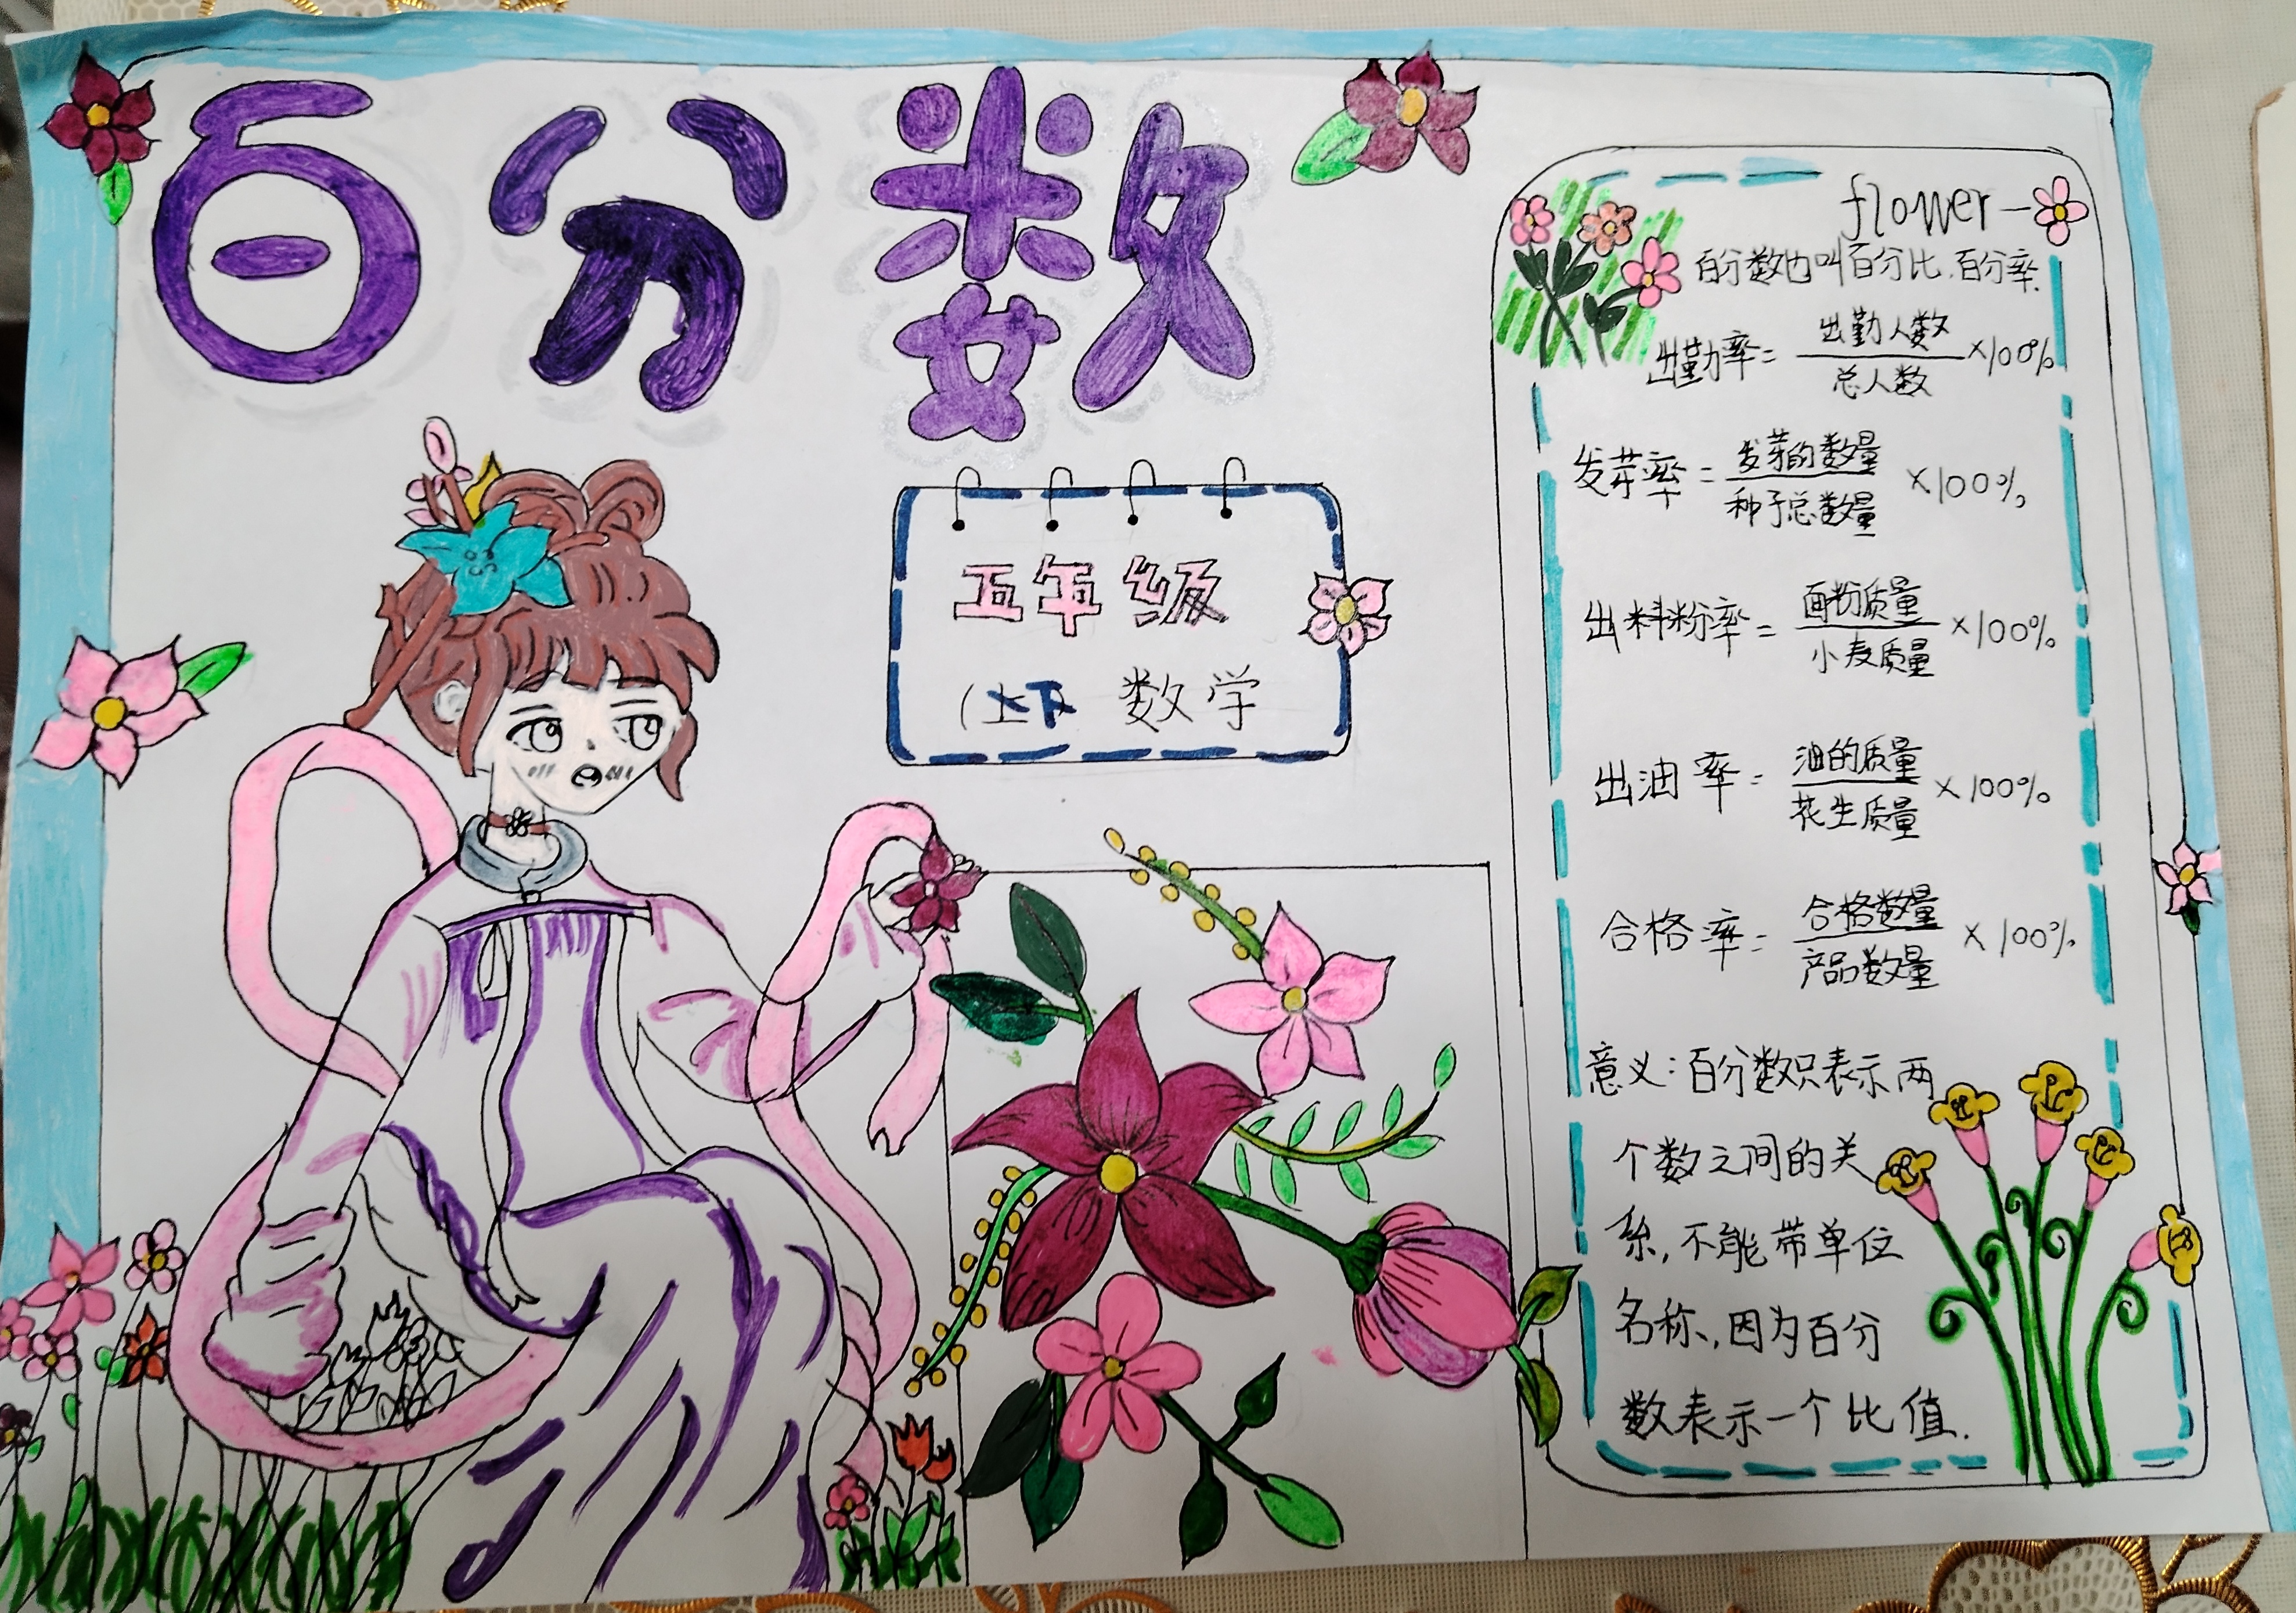 百分数
五年级
(上下 数学
flower
百分数也叫百分比.百分率.
出勤率 = 出勤人数/总人数 ×100%
发芽率 = 发芽的数量/种子总数量 ×100%
出料粉率 = 面粉质量/小麦质量 ×100%
出油率 = 油的质量/花生质量 ×100%
合格率 = 合格数量/产品数量 ×100%
意义:百分数只表示两
个数之间的关
系,不能带单位
名称、因为百分
数表示一个比值.